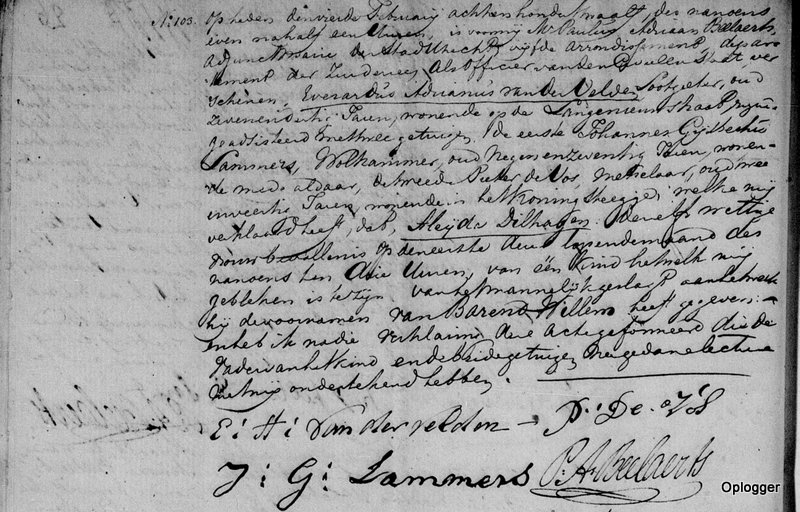 No: 103. Op heden den vierde February achtienhondert twaalf, des namens
even na half een Uuren, is voor my Mr. Paulus Adriaan Beelaerts,
adjunct Maire der Stad Utrecht vyfde arrondissement, departement
der Zuiderzee, Als Officier van den Civilen Staat ver
schenen, Everardus Adrianus van der Velden Lootgieter, oud
zevenendertig Jaren, wonende op de
geadsisteerd met twee getuigen, de eerste Johannes Gysbertus
Lammers, Wolkammer, oud Negenenzeventig Jaren, wonen-
de mede aldaar, de tweede Pieter de Vos, metselaar, oud twee
enveertig Jaren, wonende in het Koning steegje, welke my
verklaard heeft, dat, Aleyda Dilhagen, deszelfs wettige
vrouw bevallen is op den eerste deser lopende maand des
namens ten drie Uuren, van één Kind hetwelk my
gebleken is te zyn van het mannelyk geslagt aan hetwelk
hy de voornamen van Barend Willem heeft gegeven:
en heb ik na die verklaring deze acte geformeerd die de
Vader van het Kind en de beide getuigen na gedane lecture
met my ondertekend hebben.
E: A: van der velden P: De Vos
J: G: Lammers P: A: Beelaerts
Oplogger